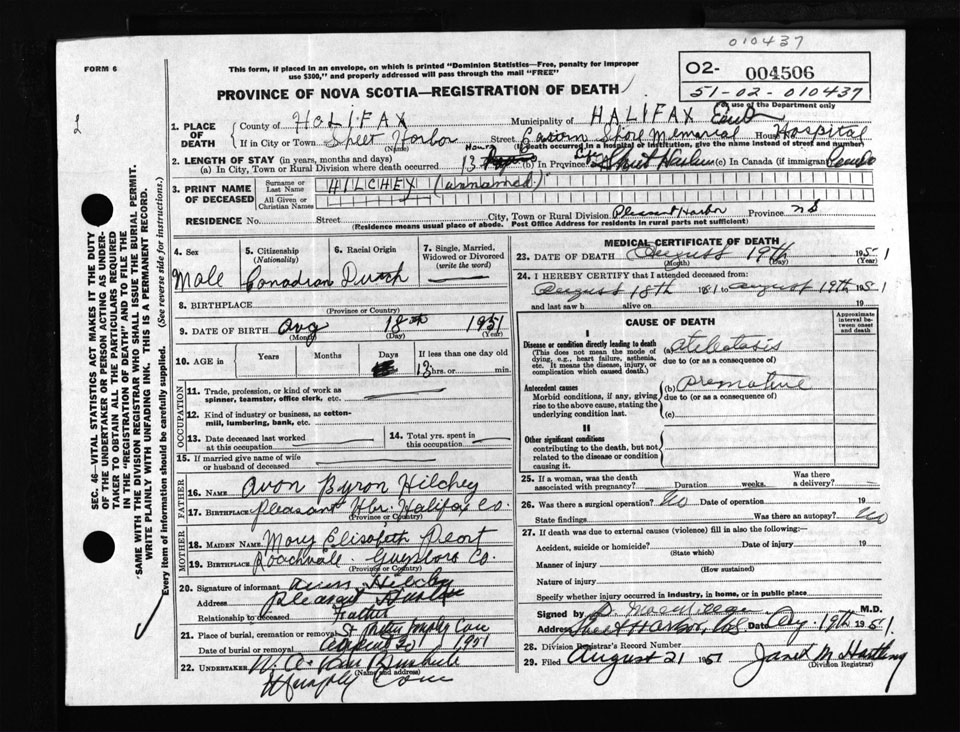 010437
FORM 6
This form, if placed in an envelope, on which is printed "Dominion Statistics—Free, penalty for improper
use $300," and properly addressed will pass through the mail "FREE"
02- 004506
51-02-010437
PROVINCE OF NOVA SCOTIA—REGISTRATION OF DEATH
use of the Department only
1. PLACE OF DEATH
County of HALIFAX Municipality of HALIFAX East
If in City or Town Sheet Harbor (Name) Street Eastern Shore Memorial House No. Hospital
(If death occurred in a hospital or institution, give the name instead of street and number)
2. LENGTH OF STAY (in years, months and days)
(a) In City, Town or Rural Division where death occurred 13 Hours (b) In Province Life (c) In Canada (if immigrant)
3. PRINT NAME OF DECEASED
Surname or Last Name HILCHEY (unnamed)
All Given or Christian Names
RESIDENCE No. Street City, Town or Rural Division Pleasant Harbor Province NS
(Residence means usual place of abode. Post Office Address for residents in rural parts not sufficient)
SEC. 46—VITAL STATISTICS ACT MAKES IT THE DUTY
OF THE UNDERTAKER OR PERSON ACTING AS UNDER-
TAKER TO OBTAIN ALL THE PARTICULARS REQUIRED
IN THE "REGISTRATION OF DEATH" AND TO FILE THE
SAME WITH THE DIVISION REGISTRAR WHO SHALL ISSUE THE BURIAL PERMIT.
WRITE PLAINLY WITH UNFADING INK. THIS IS A PERMANENT RECORD.
Every item of information should be carefully supplied. (See reverse side for instructions.)
4. Sex Male
5. Citizenship (Nationality) Canadian
6. Racial Origin Dutch
7. Single, Married, Widowed or Divorced (write the word)
8. BIRTHPLACE
(Province or Country)
9. DATE OF BIRTH Aug 18 1951
(Month) (Day) (Year)
10. AGE in Years Months Days If less than one day old
13 hrs. or min.
OCCUPATION
11. Trade, profession, or kind of work as
spinner, teamster, office clerk, etc.
12. Kind of industry or business, as cotton-
mill, lumbering, bank, etc.
13. Date deceased last worked at this occupation
14. Total yrs. spent in this occupation
15. If married give name of wife
or husband of deceased
FATHER
16. Name Avon Byron Hilchey
17. Birthplace Pleasant Hbr. Halifax Co.
(Province or Country)
MOTHER
18. Maiden Name Mary Elisabeth
19. Birthplace Guysboro Co.
(Province or Country)
20. Signature of informant Hilchey
Address Pleasant Harbor
Relationship to deceased Father
21. Place of burial, cremation or removal
Date of burial or removal August 20 1951
22. Undertaker W. A.
(Name and address)
MEDICAL CERTIFICATE OF DEATH
23. DATE OF DEATH August 19th 1951
(Month) (Day) (Year)
24. I HEREBY CERTIFY that I attended deceased from:
August 18th 1951 to August 19th 1951
and last saw h alive on 19
CAUSE OF DEATH
Approximate interval between onset and death
I
Disease or condition directly leading to death (a) atelectasis
(This does not mean the mode of dying, e.g., heart failure, asthenia, etc. It means the disease, injury, or complication which caused death.)
due to (or as a consequence of)
Antecedent causes (b) premature
Morbid conditions, if any, giving rise to the above cause, stating the underlying condition last.
due to (or as a consequence of)
(c)
II
Other significant conditions
contributing to the death, but not
related to the disease or condition
causing it.
25. If a woman, was the death
associated with pregnancy? Duration weeks. Was there a delivery?
26. Was there a surgical operation? No Date of operation 19
State findings Was there an autopsy? No
27. If death was due to external causes (violence) fill in also the following:—
Accident, suicide or homicide? Date of injury 19
(State which)
Manner of injury
(How sustained)
Nature of injury
Specify whether injury occurred in Industry, in home, or in public place
Signed by M.D.
Address Sheet Harbor, Date Aug. 19th 1951.
28. Division Registrar's Record Number
29. Filed August 21 1951 Janet M Hartling
(Division Registrar)